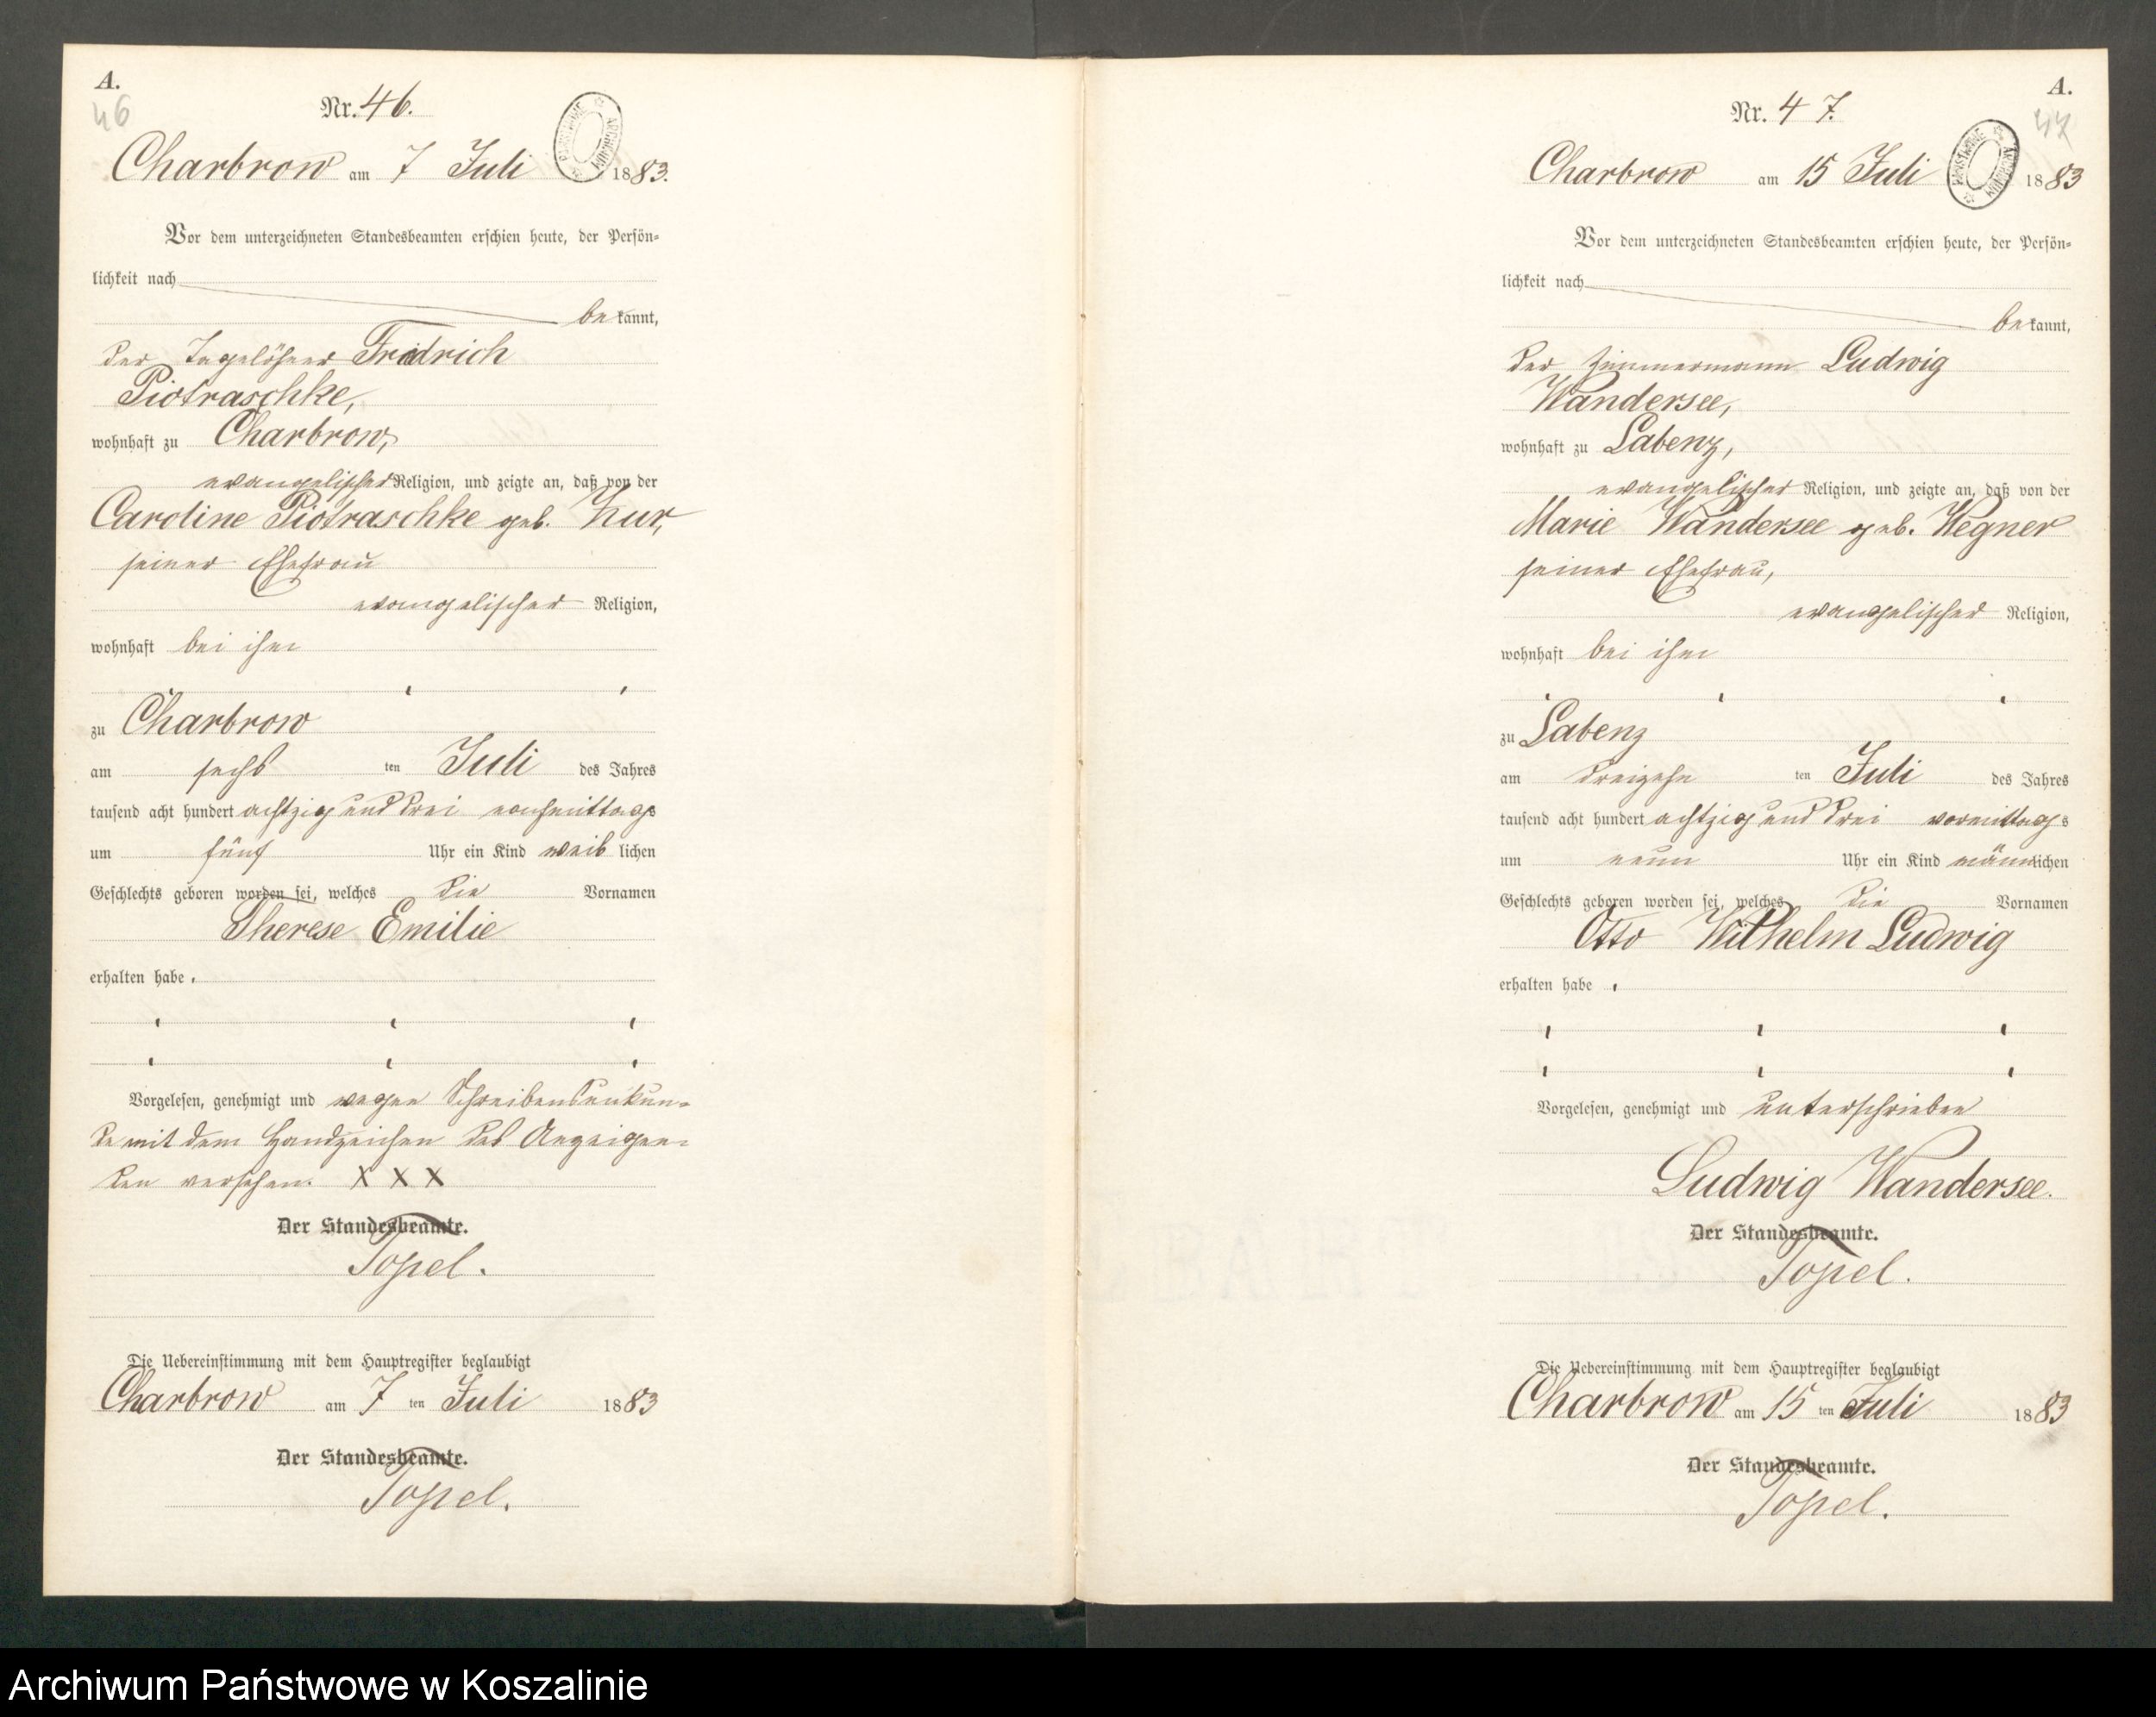 A.
46
Nr. 46.
PAŃSTWOWE ARCHIWUM
Charbrow am 7 Juli 1883.
Vor dem unterzeichneten Standesbeamten erschien heute, der Persön-
lichkeit nach
bekannt,
der Tagelöhner Friedrich
Piotraschke,
wohnhaft zu Charbrow,
evangelischer Religion, und zeigte an, daß von der
Caroline Piotraschke geb. Zur,
seiner Ehefrau
evangelischer Religion,
wohnhaft bei ihm
zu Charbrow
am sechs ten Juli des Jahres
tausend acht hundert achtzig und drei nachmittags
um fünf Uhr ein Kind weiblichen
Geschlechts geboren worden sei, welches die Vornamen
Therese Emilie
erhalten habe.
Vorgelesen, genehmigt und wegen Schreibensunkun-
de mit dem Handzeichen des Anzeigen-
den versehen. X X X
Der Standesbeamte.
Topel.
Die Uebereinstimmung mit dem Hauptregister beglaubigt
Charbrow am 7 ten Juli 1883
Der Standesbeamte.
Topel.
A.
47
Nr. 47.
PAŃSTWOWE ARCHIWUM
Charbrow am 15 Juli 1883
Vor dem unterzeichneten Standesbeamten erschien heute, der Persön-
lichkeit nach
bekannt,
der Zimmermann Ludwig
Wandersee,
wohnhaft zu Labenz,
evangelischer Religion, und zeigte an, daß von der
Marie Wandersee geb. Wegner
seiner Ehefrau,
evangelischer Religion,
wohnhaft bei ihm
zu Labenz
am dreizehn ten Juli des Jahres
tausend acht hundert achtzig und drei vormittags
um neun Uhr ein Kind männlichen
Geschlechts geboren worden sei, welches die Vornamen
Otto Wilhelm Ludwig
erhalten habe.
Vorgelesen, genehmigt und unterschrieben
Ludwig Wandersee.
Der Standesbeamte.
Topel.
Die Uebereinstimmung mit dem Hauptregister beglaubigt
Charbrow am 15 ten Juli 1883
Der Standesbeamte.
Topel.
Archiwum Państwowe w Koszalinie